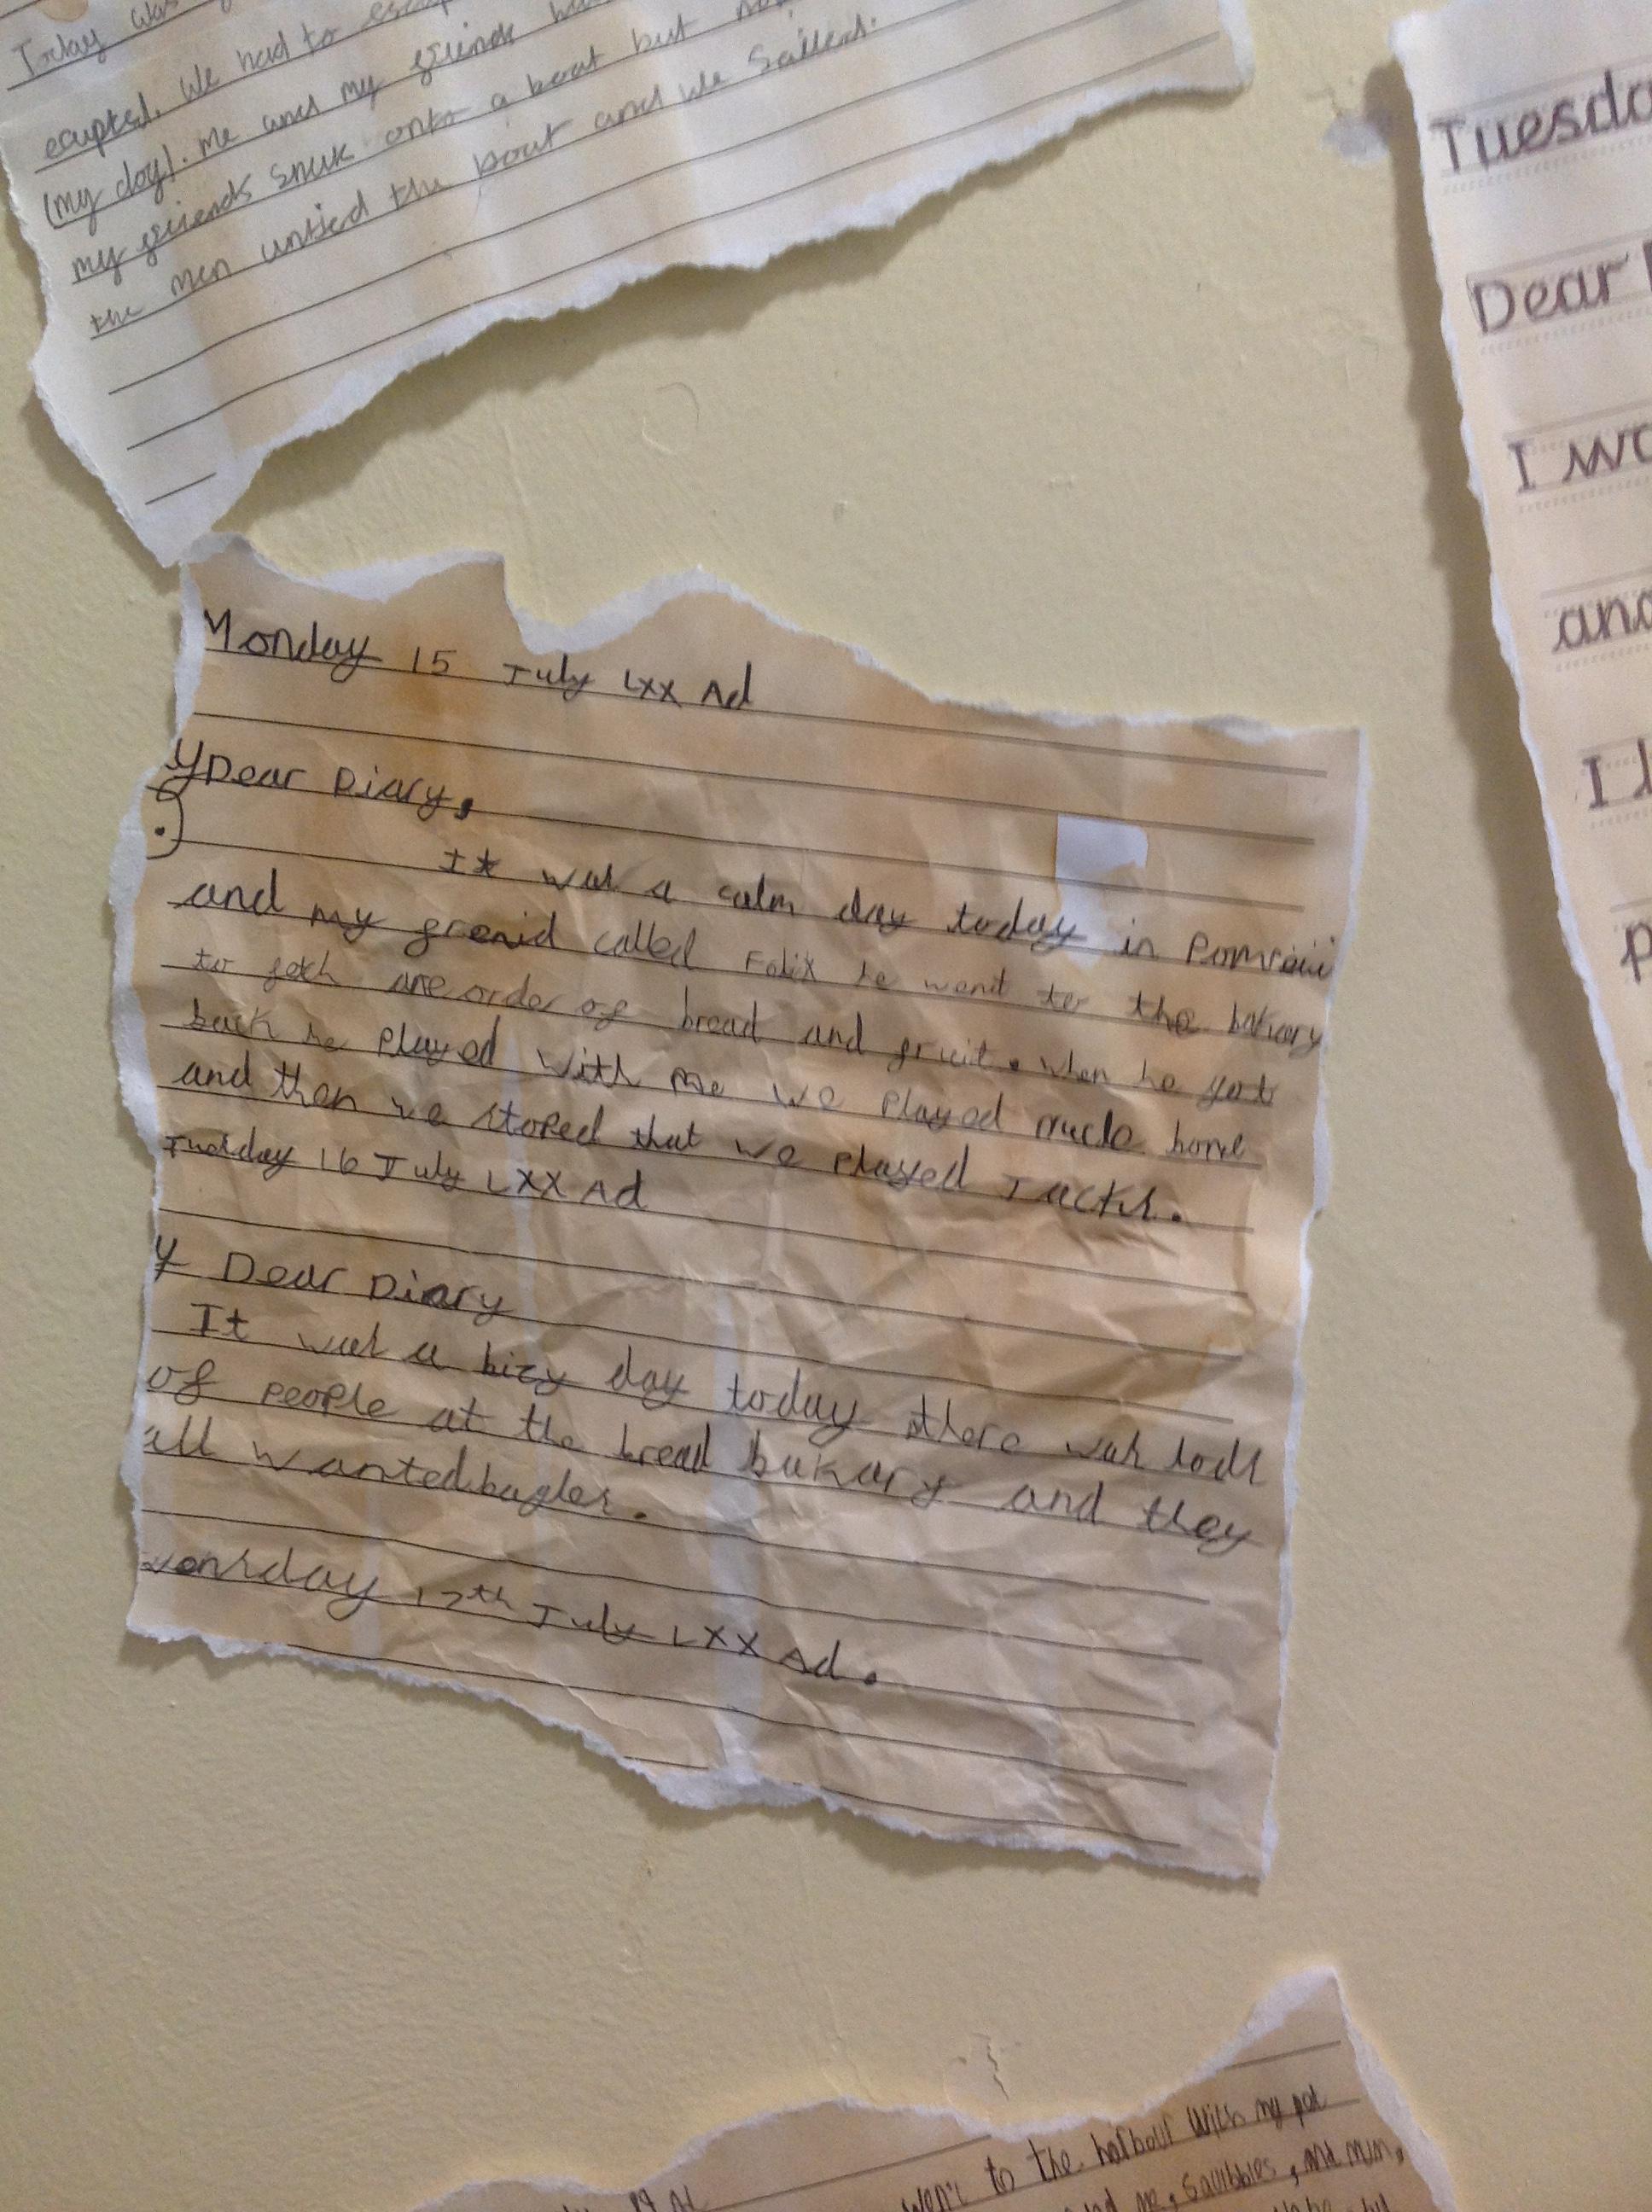 Today was
erupted. We had to escap
(my dog). Me and my friends ha
my friends snuk onto a boat but
the men untied the boat and we sailed.
Tuesda
Dear
I wo
and
I l
p
Monday 15 July LXX Ad
Dear Diary,
It was a calm day today in
and my called Felix he went to the
to are order of bread and fruit. when he got
back he played with me we played bone
and then we stoped that we played Jacks.
Tuesday 16 July LXX Ad
Y Dear Diary
It was a bizy day today there was
of people at the bread bakary and they
all wanted bagles.
17th July LXX Ad.
to the harbour with my
me, squibbles, and mum,